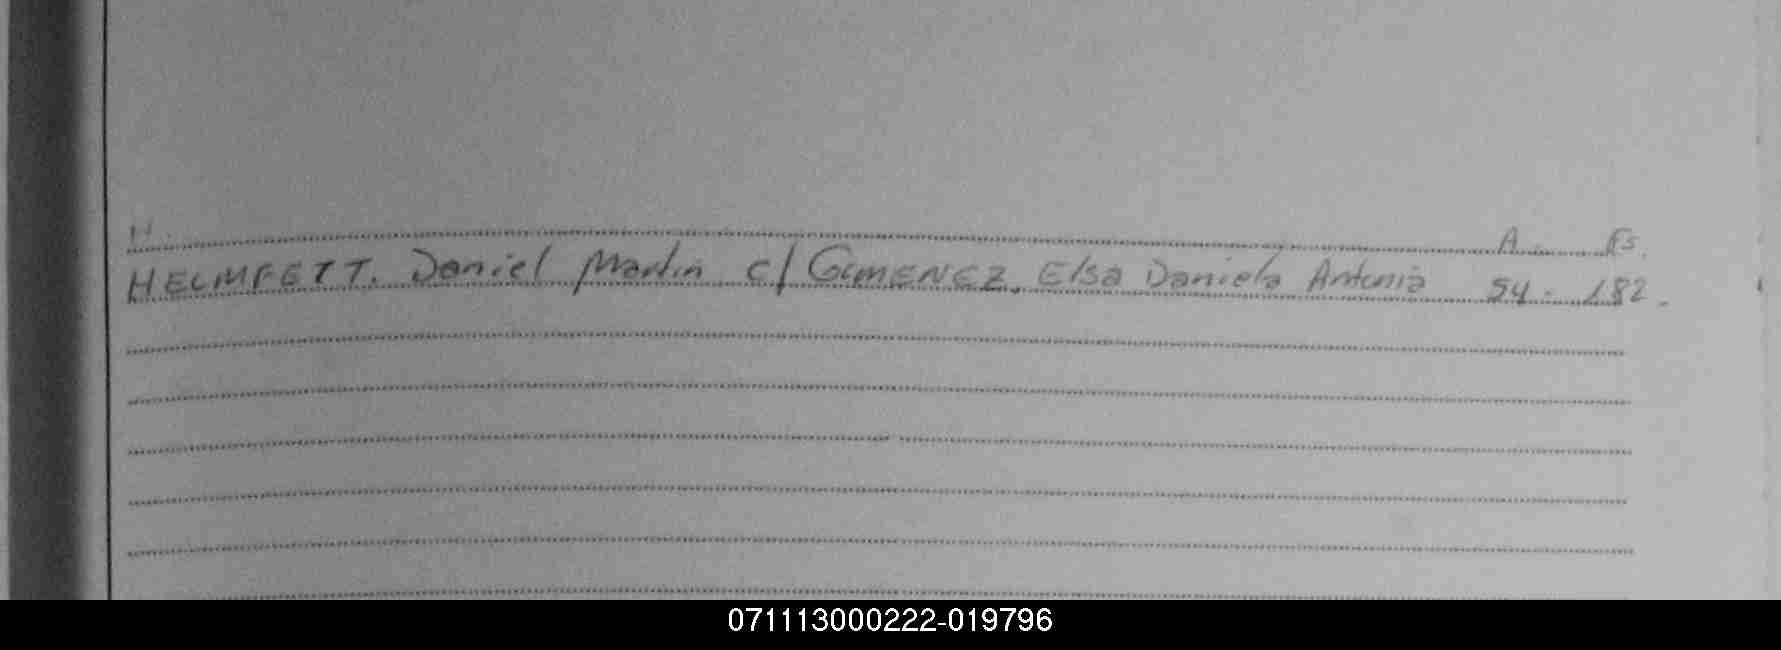 H. A. Fs.
HELMFETT. Daniel Martin c/ GIMENEZ. Elsa Daniela Antonia 54 - 182.
071113000222-019796